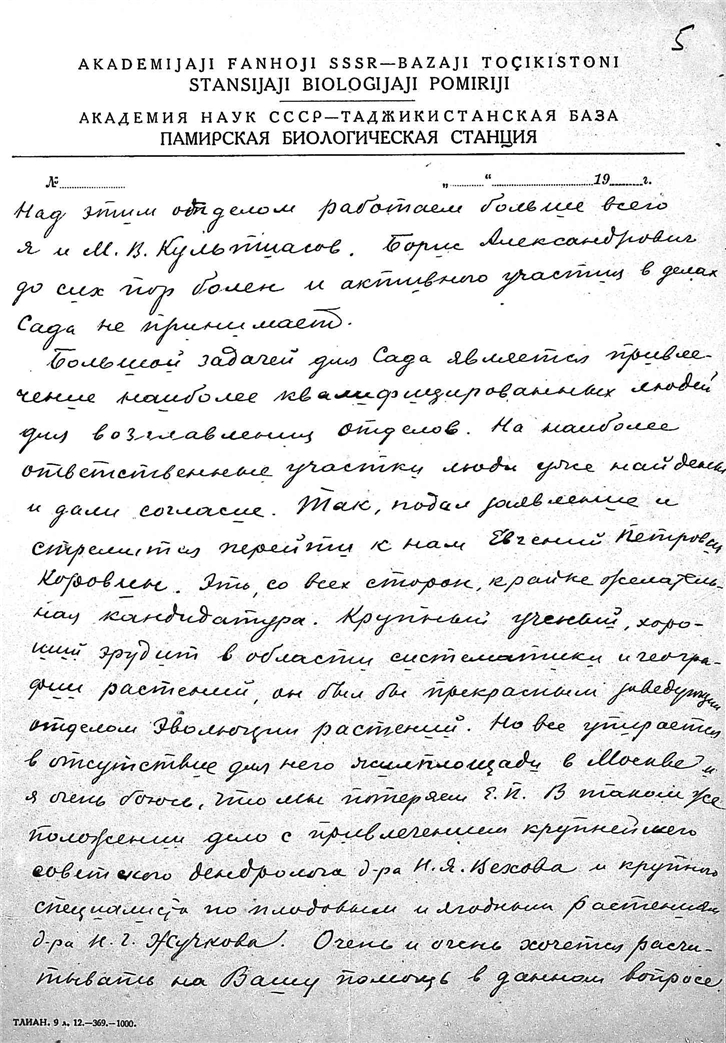 5
AKADEMIJAJI FANHOJI SSSR—BAZAJI TOÇIKISTONI
STANSIJAJI BIOLOGIJAJI POMIRIJI
АКАДЕМИЯ НАУК СССР—ТАДЖИКИСТАНСКАЯ БАЗА
ПАМИРСКАЯ БИОЛОГИЧЕСКАЯ СТАНЦИЯ
№ „ “ 19 г.
Над этим отделом работаем больше всего
я и М. В. Культиасов. Борис Александрович
до сих пор болен и активного участия в делах
Сада не принимает.
Большой задачей для Сада является привле-
чение наиболее квалифицированных людей
для возглавления отделов. На наиболее
ответственные участки люди уже найдены
и дали согласие. Так, подал заявление и
стремится перейти к нам Евгений Петрович
Коровин. Это, со всех сторон, крайне желатель-
ная кандидатура. Крупный ученый, хоро-
ший эрудит в области систематики и геогра-
фии растений, он был бы прекрасным заведующим
отделом Эволюции растений. Но все упирается
в отсутствие для него жилплощади в Москве и
я очень боюсь, что мы потеряем Е. П. В таком же
положении дело с привлечением крупнейшего
советского дендролога д-ра Н. Я. Вехова и крупного
специалиста по плодовым и ягодным растениям
д-ра Н. Г. Жучкова. Очень и очень хочется расчи-
тывать на Вашу помощь в данном вопросе.
ТЛИАН. 9 л. 12.—369.—1000.